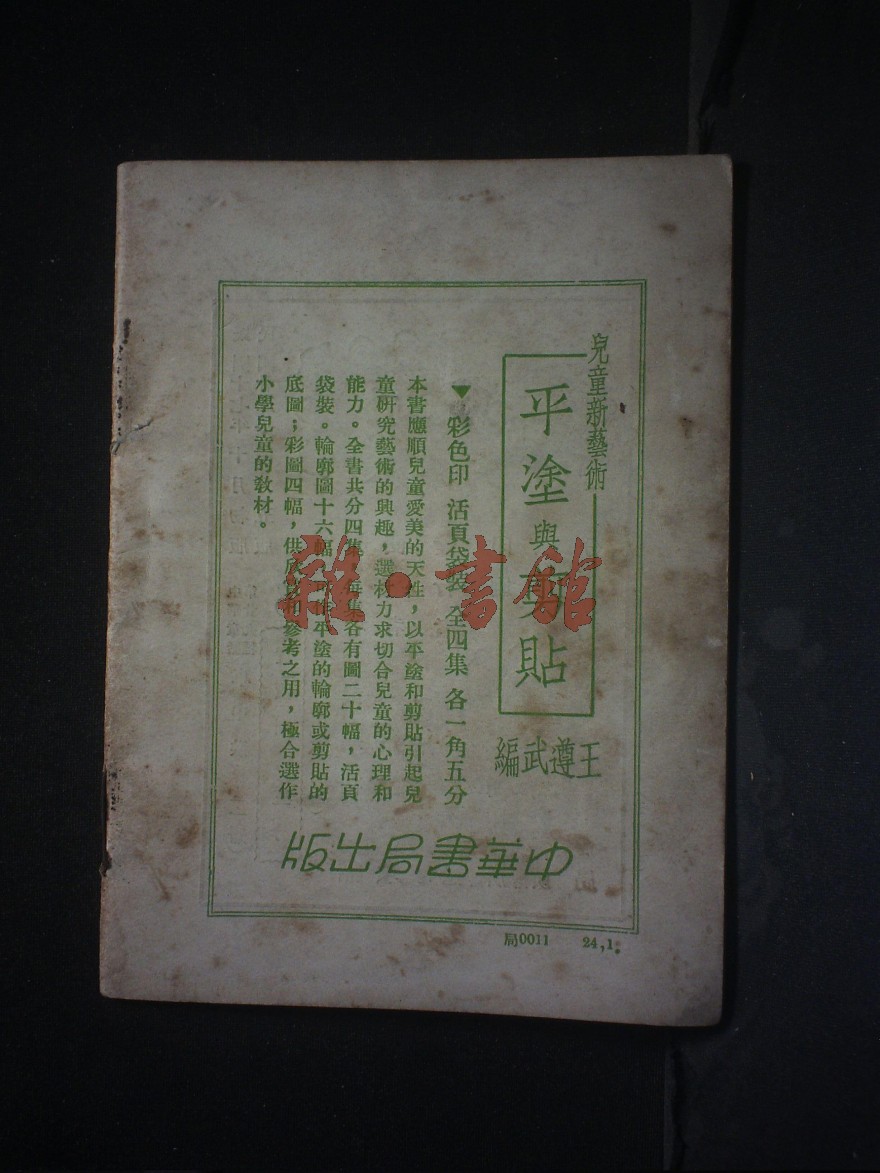 兒童新藝術
平塗與剪貼
王遵武編
▼彩色印 活頁袋裝 全四集 各一角五分
本書應順兒童愛美的天性,以平塗和剪貼引起兒
童研究藝術的興趣,選材力求切合兒童的心理和
能力。全書共分四集,每集各有圖二十幅,活頁
袋裝。輪廓圖十六幅,平塗的輪廓或剪貼的
底圖;彩圖四幅,供欣賞和參考之用,極合選作
小學兒童的教材。
中華書局出版
局0011 24,1.
雜·書館